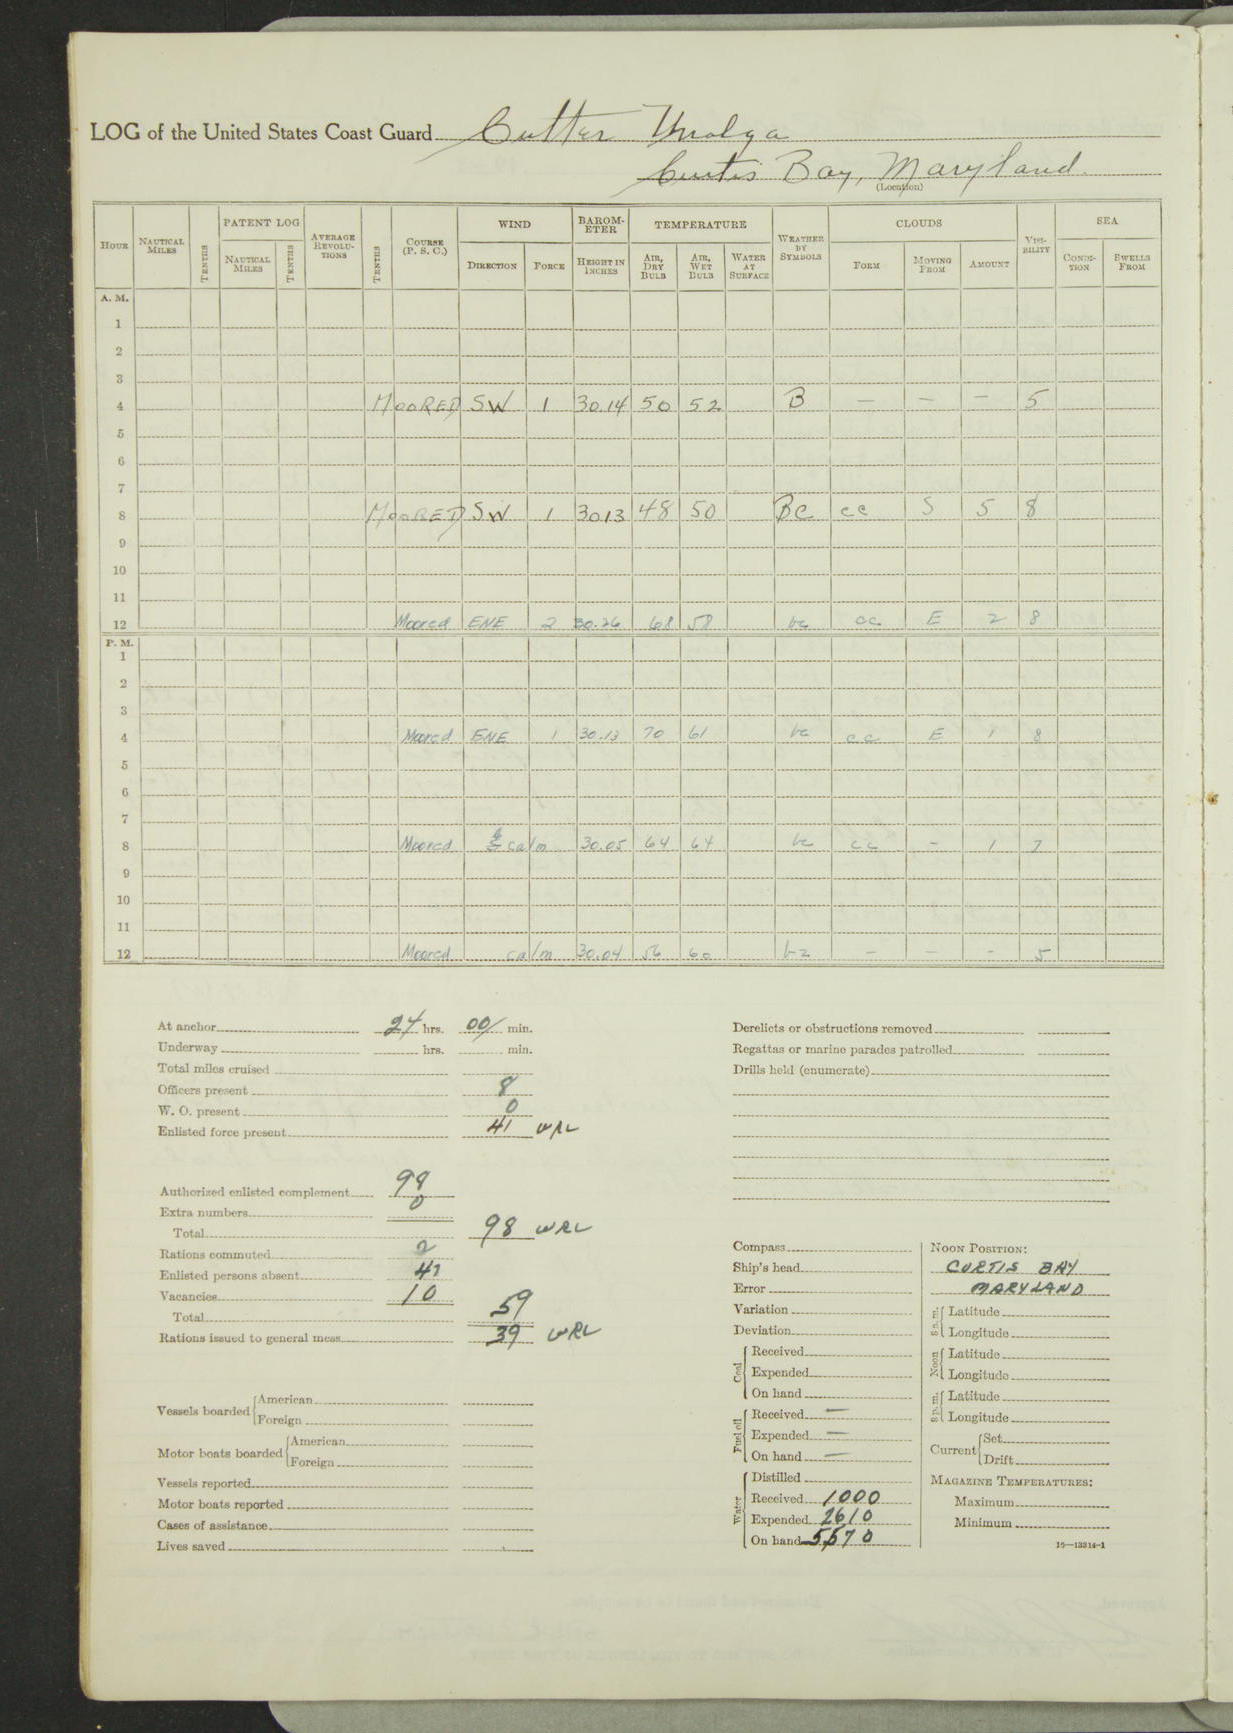 LOG of the United States Coast Guard Cutter Unalga
Curtis Bay, Maryland.
(Location)
HOUR NAUTICAL MILES TENTHS PATENT LOG NAUTICAL MILES TENTHS AVERAGE REVOLU-TIONS TENTHS COURSE (P. S. C.) WIND DIRECTION FORCE BAROM-ETER HEIGHT IN INCHES TEMPERATURE AIR, DRY BULB AIR, WET BULB WATER AT SURFACE WEATHER BY SYMBOLS CLOUDS FORM MOVING FROM AMOUNT VISI-BILITY SEA CONDI-TION SWELLS FROM
A. M.
1
2
3
4 MOORED SW 1 30.14 50 52 B — — — 5
5
6
7
8 MOORED SW 1 30.13 48 50 BC CC S 5 8
9
10
11
12 Moored ENE 2 30.26 68 58 bc cc E 2 8
P. M.
1
2
3
4 Moored ENE 1 30.13 70 61 bc cc E 1 8
5
6
7
8 Moored calm 30.05 64 64 bc cc - 1 7
9
10
11
12 Moored calm 30.04 56 60 bz — — - 5
At anchor 24 hrs. 00 min.
Underway hrs. min.
Total miles cruised
Officers present 8
W. O. present 0
Enlisted force present 41 WRL
Authorized enlisted complement 98
Extra numbers 0
Total 98 WRL
Rations commuted 2
Enlisted persons absent 47
Vacancies 10
Total 59
Rations issued to general mess 39 WRL
Vessels boarded American
Foreign
Motor boats boarded American
Foreign
Vessels reported
Motor boats reported
Cases of assistance
Lives saved
Derelicts or obstructions removed
Regattas or marine parades patrolled
Drills held (enumerate)
Compass
Ship's head
Error
Variation
Deviation
Coal Received
Expended
On hand
Fuel oil Received —
Expended —
On hand —
Water Distilled
Received 1000
Expended 2610
On hand 5570
NOON POSITION:
CURTIS BAY
MARYLAND
8 a. m. Latitude
Longitude
Noon Latitude
Longitude
8 p. m. Latitude
Longitude
Current Set
Drift
MAGAZINE TEMPERATURES:
Maximum
Minimum
16—13314-1